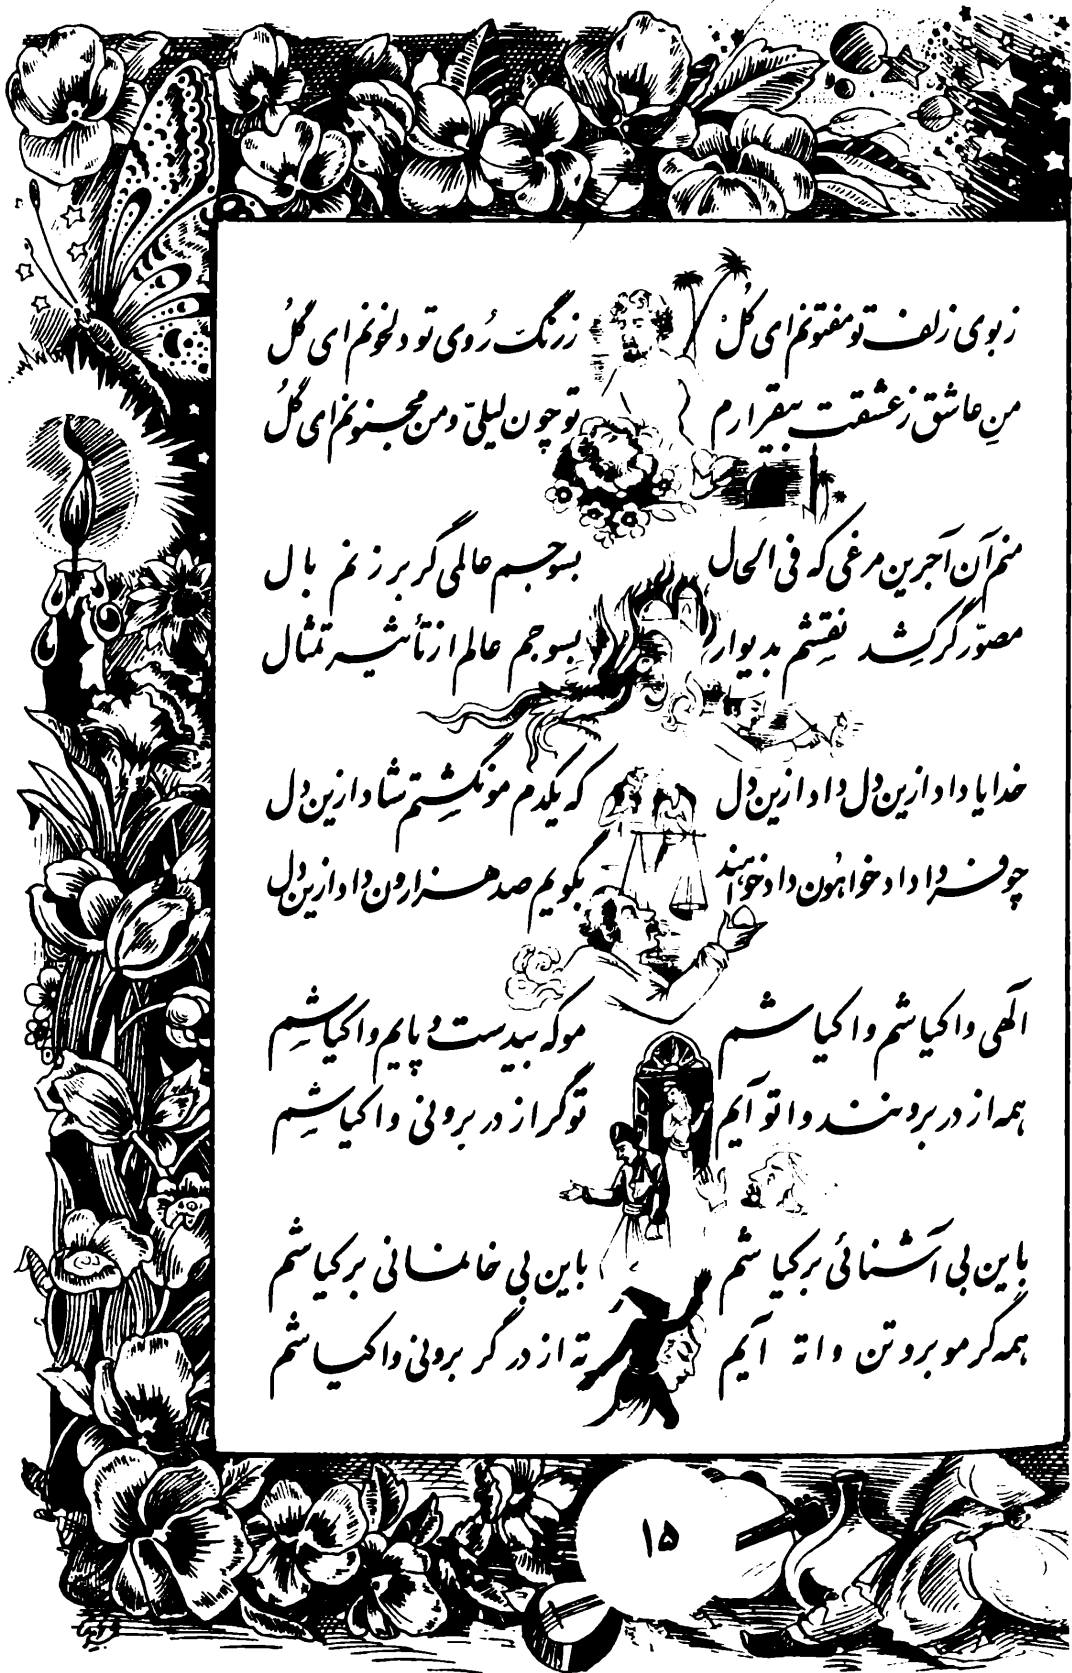 ز بوی زلف تو مفتونم ای گُل ز رنگ رُوی تو دلخونم ای گُل
منِ عاشق ز عشقت بیقرارم تو چون لیلیّ و من مجنونم ای گلُ
منم آن آجرین مرغی که فی الحال بسوجم عالمی گر برزنم بال
مصوّر گر کِشد نقِشم بدیوار بسوجم عالم از تأثیر تمثال
خدایا داد ازین دل داد ازین دل که یکدم مو نگشِتم شاد ازین دل
چو فردا داد خواهون داد خواهند بگویم صد هزارون داد ازین دل
الهی واکیاشم واکیاشم موکه بیدست و پایم واکیاشِم
همه از در برونند و اتو آیم تو گر از در برونی واکیاشِم
باین بی آشنائی برکیاشم باین بی خانمانی برکیاشم
همه گر مو برو تن واته آیم ته از در گر برونی واکیاشم
۱۵